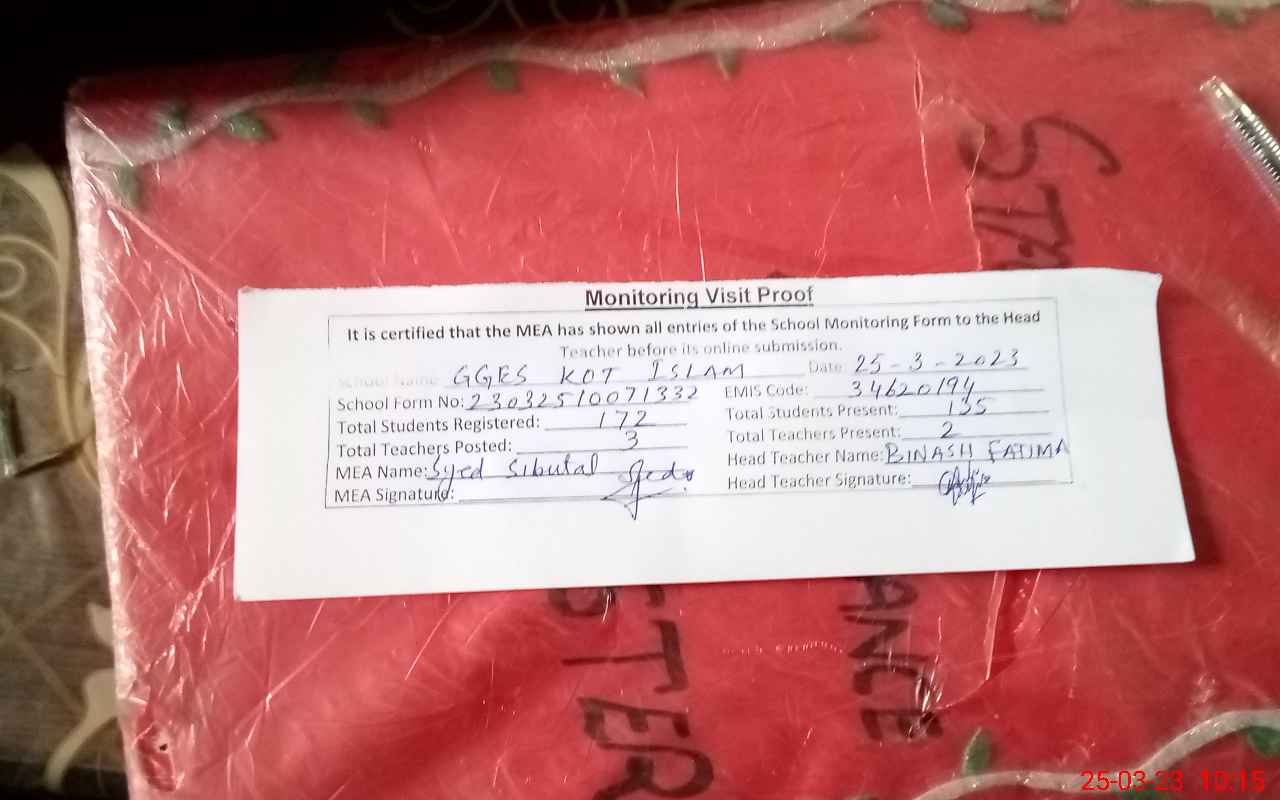 Monitoring Visit Proof
It is certified that the MEA has shown all entries of the School Monitoring Form to the Head
Teacher before its online submission.
School Name: GGES KOT ISLAM Date: 25-3-2023
School Form No: 23032510071332 EMIS Code: 34620194
Total Students Registered: 172 Total Students Present: 135
Total Teachers Posted: 3 Total Teachers Present: 2
MEA Name: Syed Sibutal Head Teacher Name: BINASH FATIMA
MEA Signature: Head Teacher Signature:
STER
ANCE
25-03-23 10:15